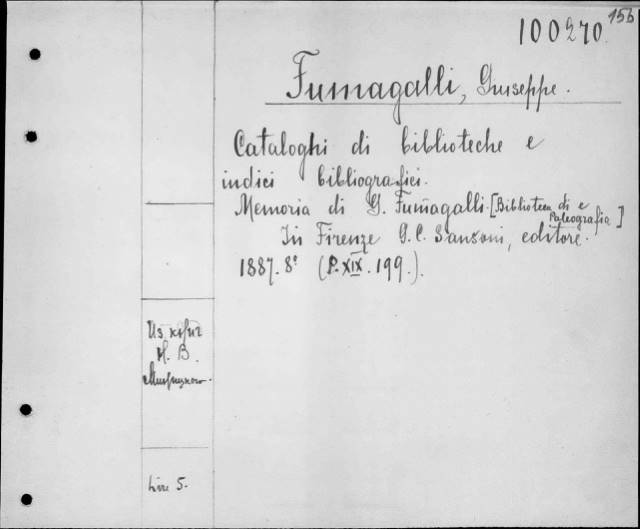 156
100270
Fumagalli, Giuseppe.
Cataloghi di biblioteche e
indici bibliografici.
Memoria di G. Fumagalli. [Biblioteca di e Paleografia]
In Firenze G. C. Sansoni, editore.
1887. 8º (P. XIX. 199.).
Из книг
И. В.
Lire 5.